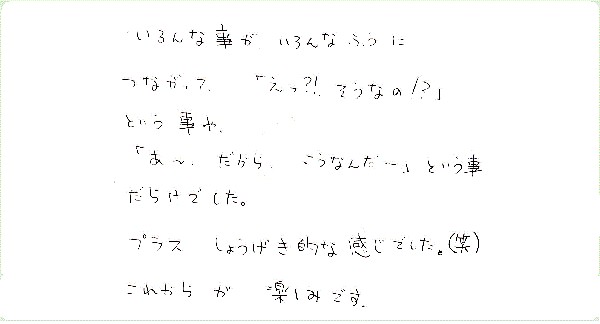 いろんな事が、いろんなふうに
つながって、「えっ?!、そうなの!?」
という事や、
「あ〜、だから、こうなんだ〜」という事
だらけでした。
プラス しょうげき的な感じでした。(笑)
これからが 楽しみです。